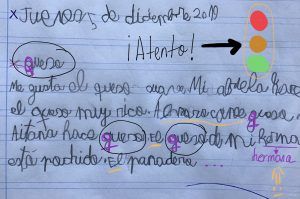 x Jueves, 5 de diciembre 2019
¡Atento!
x queso
Me gusta el queso Mi abuela hace
el queso muy rico. queso.
Aitana hace queso. El queso d mi hermana
está podrido. El panadero ...
hermana